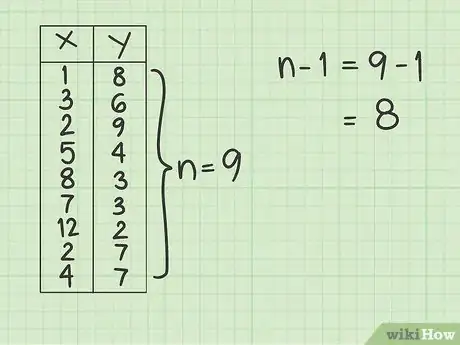 X Y
1 8
3 6
2 9
5 4
8 3
7 3
12 2
2 7
4 7
n = 9
n - 1 = 9 - 1
= 8
wikiHow